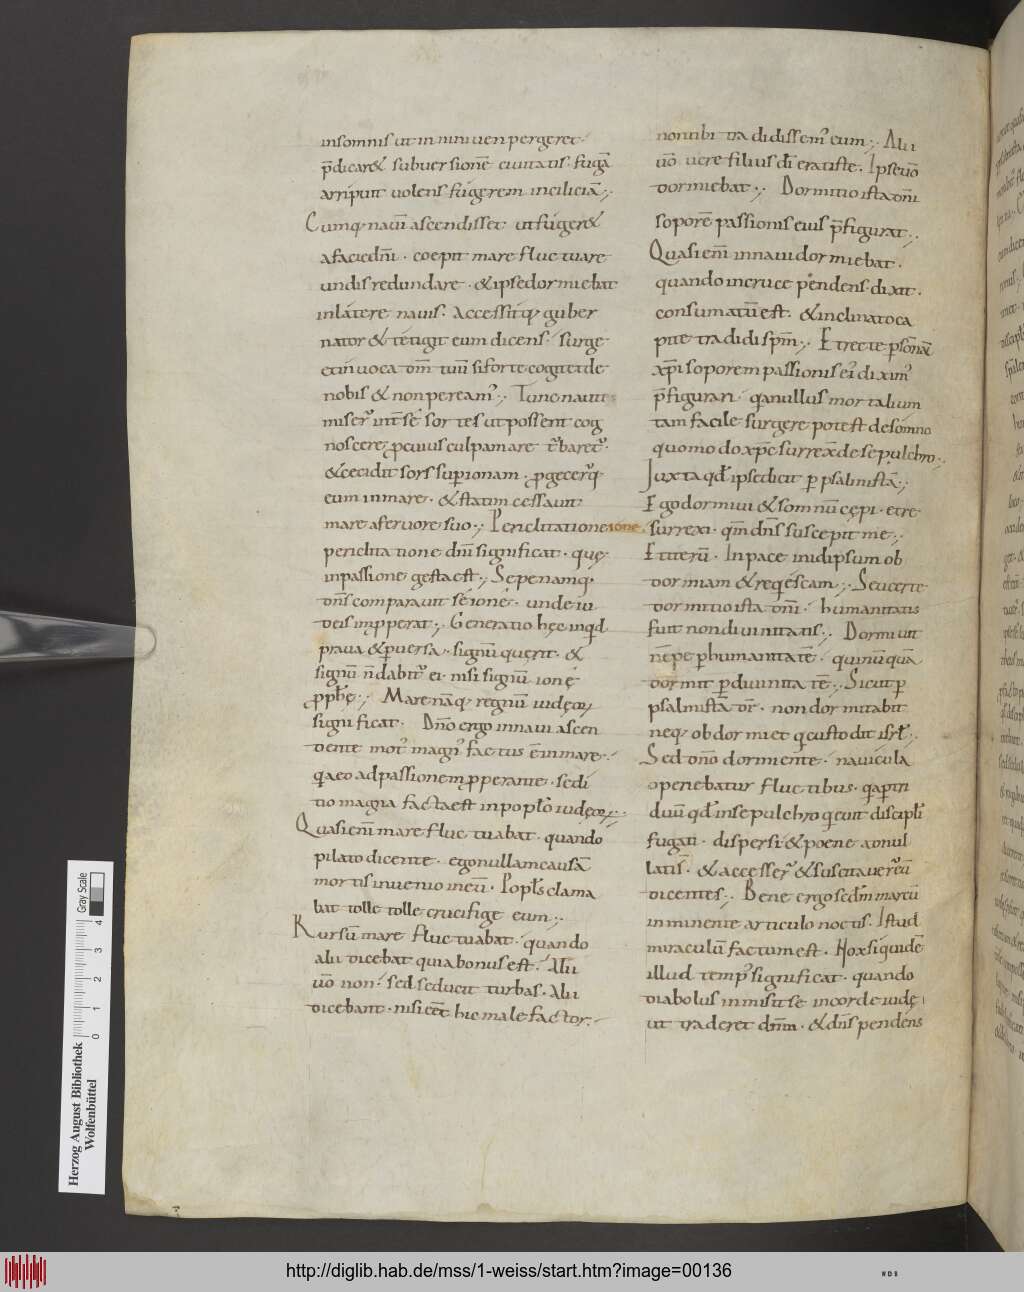 insomnis ut in niniuen pergeret·
p̄dicar& subuersionē ciuitatis· fugā
arripuit uolens fugere in ciliciā·,
Cumq; nauī ascendisset ut fuger&
a facie dn̄i· coepit mare fluctuare
undis redundare· & ipse dormiebat
in latere nauis· Accessitq; guber
nator & tetigit eum dicens· surge
& inuoca dm̄ tuū si forte cogitet de
nobis & non peream᾽·, Tunc nautę
miserᷣ int̄ sé sortes ut possent cog
noscere ꝓ cuius culpa mare t᷑baretᷣ·
& cecidit sors sup̱ ionam· ꝓgecer̄q;
eum in mare· & statim cessauit
mare a feruore suo·, Periclitatione ionę
periclitatione dn̄i significat· quę
in passione gesta est·, Sepe namq;
dn̄s comparauit sé ionę· unde iu
deis imꝓperat·, Generatio hęc inq̇d
praua & ꝑuersa· signū querit· &
signū n̄ dabitᷣ ei· nisi signū ionę
ꝓph̄ę·, Mare nāq; regnū iudęoꝝ
significat· Dn̄o ergo in naui ascen
dente motᷣ magnᷣ factus ē in mare·
q̇a eo ad passionem ꝓperante· sedi
tio magna facta est in popło iudęoꝝ·,
Quasi em̄ mare fluctuabat· quando
pilato dicente· ego nullam causā
mortis inuenio in eū· Popłs clama
bat tolle tolle crucifige eum·,
Rursū mare fluctuabat· quando
alii dicebat quia bonus est· Alii
ū̄o non· sed seducit turbas· Alii
dicebant· nisi eēt hic malefactor·
non tibi tradidissem᾽ eum·, Alii
ū̄o uere filius dī erat iste· Ipse ū̄o
dormiebat·, Dormitio ista dn̄i
soporē passionis eius p̄figurat·,
Quasi em̄ in naui dormiebat·
quando in cruce pendens· dixit·
consumatū est· & inclinato ca
pite tradidi sp̄m·, Et recte ꝑsonā
xp̄i soporem passionis ei᾽ dixim᾽
p̄figurari· q̇a nullus mortalium
tam facile surgere potest de somno
quomodo xp̄c surrex̄ de sepulchro·,
Juxta qđ ipse dicit ꝑ psalmistā·,
Ego dormiui & somnū cępi· et re
surrexi· qm̄ dn̄s suscepit me·,
Et iterū· In pace in idipsum ob
dormiam & reqiescam·, Seu certe
dormitio ista dn̄i· humanitatis
fuit non diuinitatis·, Dormiuit
nēpe ꝑ humanitatē· qui nūquā
dormit ꝑ diuinitatē·, Sicut ꝑ
psalmistā dr̄· non dormitabit
neq; obdormiet q̇ custodit isrł·,
Sed dn̄o dormiente· nauicula
operiebatur fluctibus· q̇a ꝑ tri
duū qđ in sepulchro q̇euit discipłi
fugati· dispersi & poene adnul
lati s̄· & accesser̄ & suscitauer̄ eū
dicentes·, Bene ergo sedm̄ marcū
inminente articulo noctis· Istud
miraculū factum est· Nox siquidē
illud tempᷣ significat· quando
diabolus inmisit se in corde iudę
ut traderet dn̄m· & dn̄s pendens
Herzog August Bibliothek
Wolfenbüttel
Gray Scale
0 1 2 3 4
http://diglib.hab.de/mss/1-weiss/start.htm?image=00136